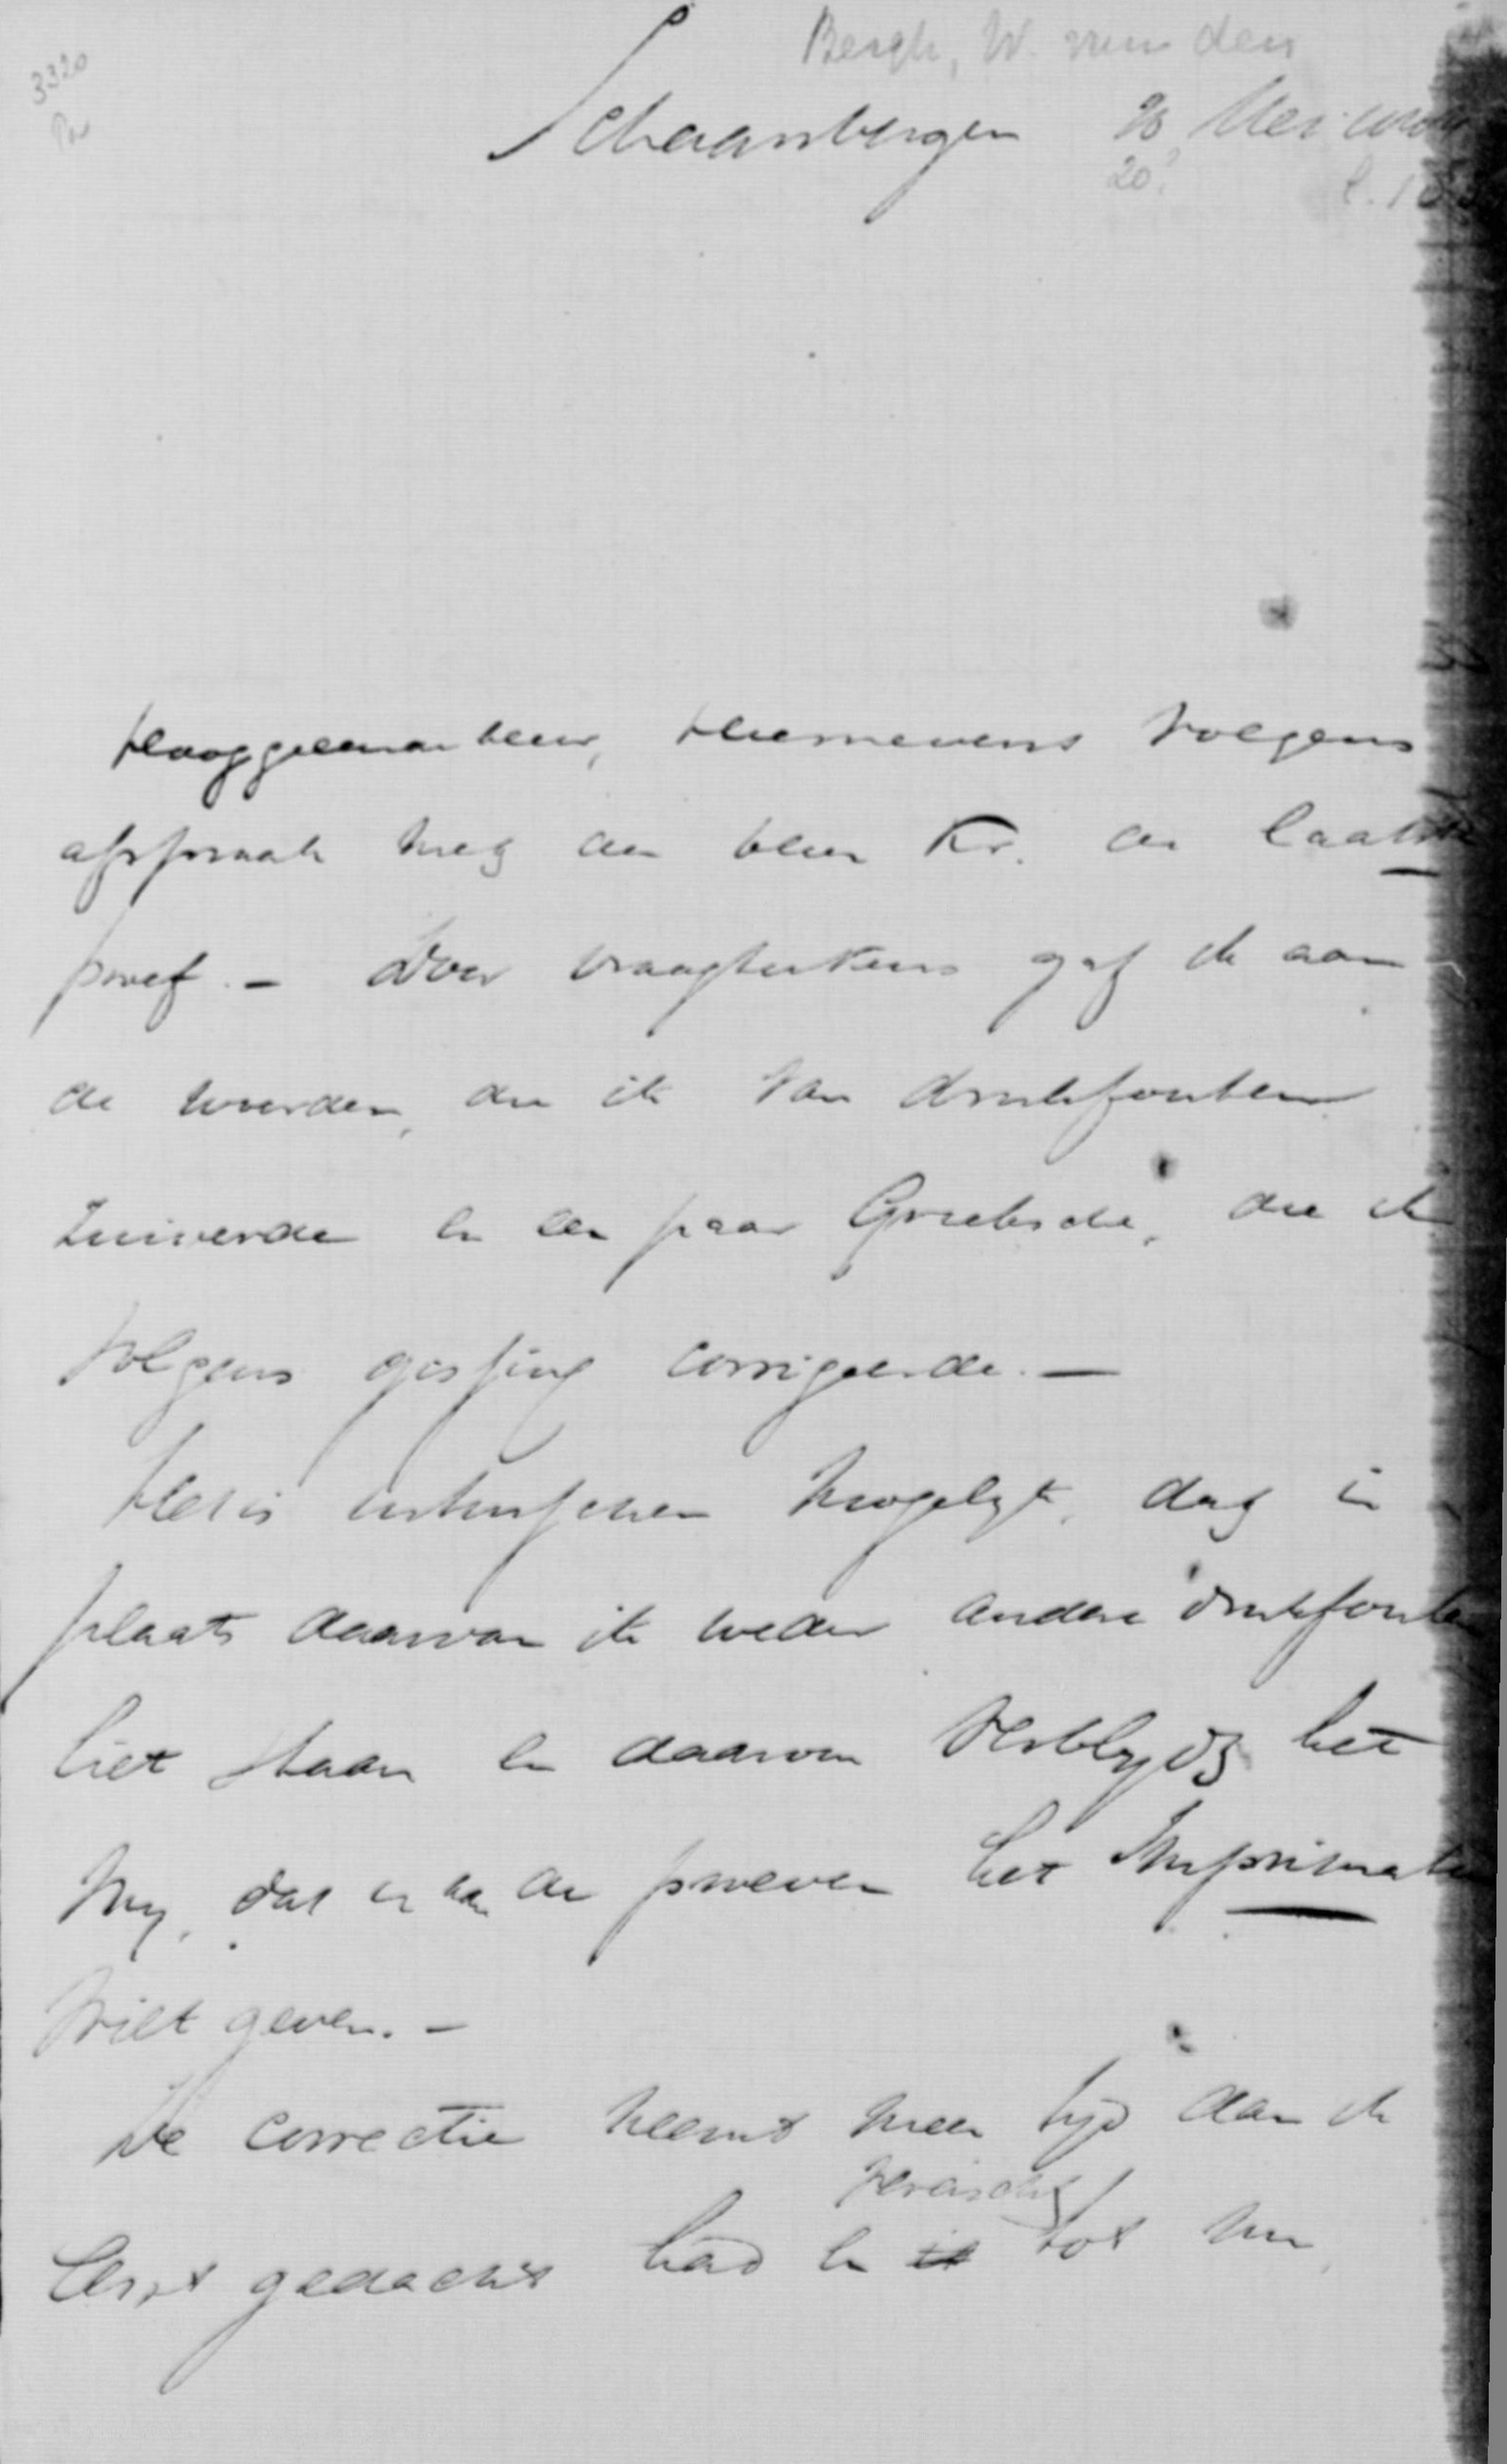 3320
Bergh, W. van den
Schaarsbergen 20 Mei
20?
Hooggeleerde heer, Hiernevens volgens
afspraak met den heer Kr. de laatste
proef. - Door vraagteekens gaf ik aan
de woorden, die ik van drukfouten
zuiverde en een paar Grieksche, die ik
volgens gissing corrigeerde. -
Het is intusschen mogelijk, dat in
plaats daarvan ik weder andere drukfouten
liet staan en daarom verblijdt het
mij, dat u aan de proeven het Imprimatur
wilt geven. -
De correctie neemt meer tijd dan ik
vereischt
eerst gedacht had en it tot nu